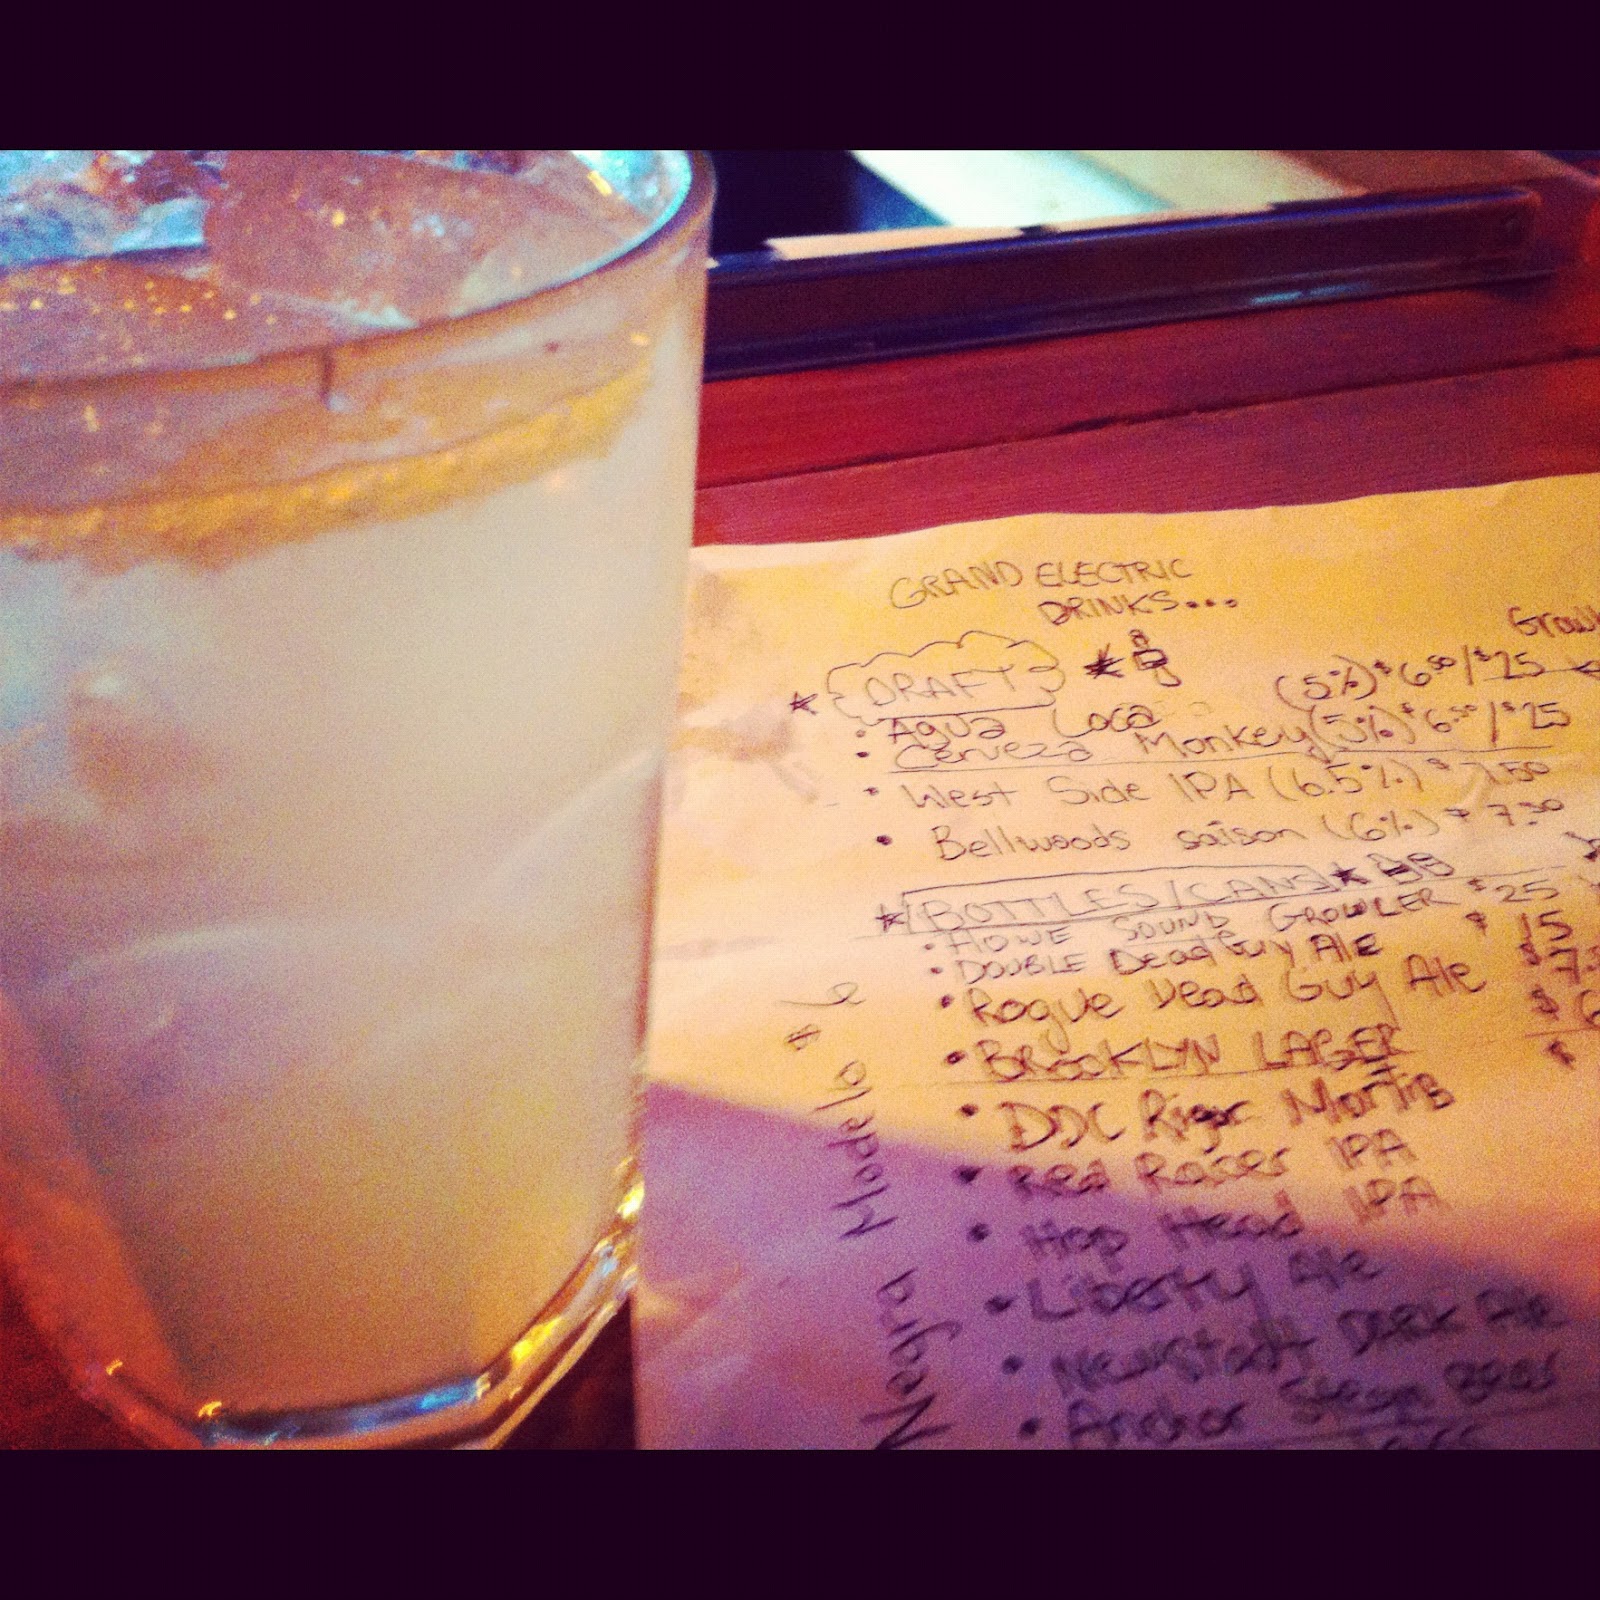 GRAND ELECTRIC
DRINKS...
Growl
DRAFT
• Agua Loca (5%) $6.50/$25
• Cerveza Monkey (5%) $6.50/$25
• West Side IPA (6.5%) $7.50
• Bellwoods saison (6%) $7.50
BOTTLES/CANS
• HOWE SOUND GROWLER $25
• DOUBLE Dead Guy Ale $15
• Rogue Dead Guy Ale $7.5
• BROOKLYN LAGER $6
• DDC Rigor Mortis $
• Red Racer IPA
• Hop Head IPA
• Liberty Ale
• Dark Ale
• Anchor Steam Beer
Negra Modelo $6